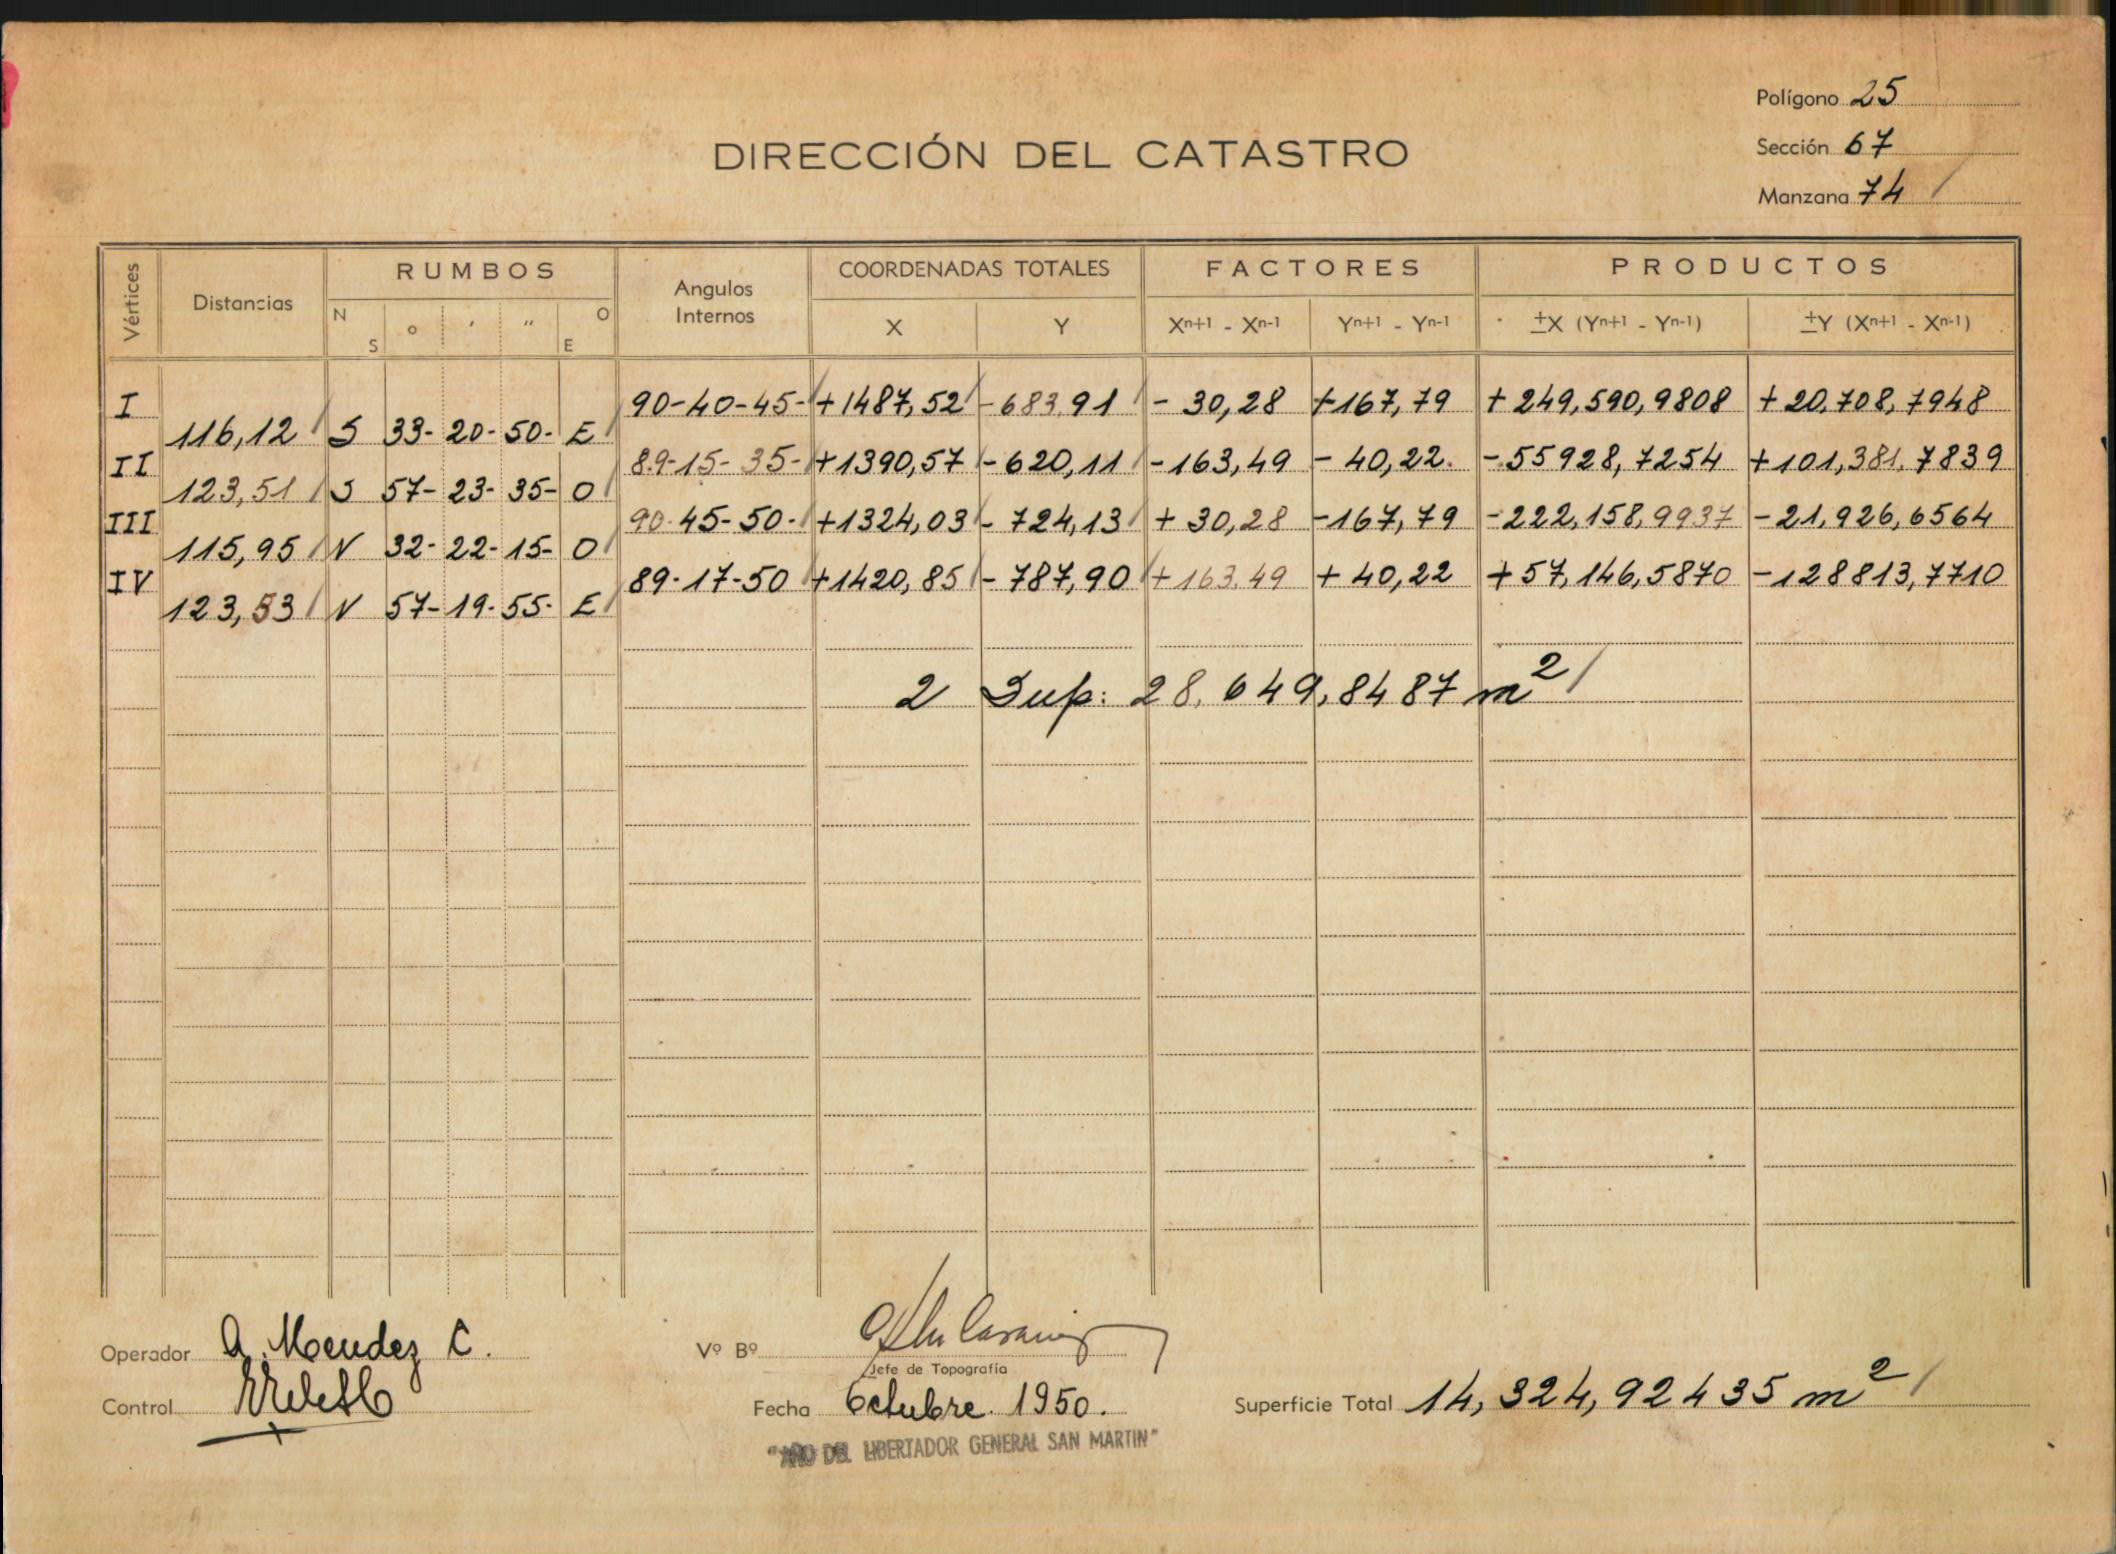 Polígono 25
DIRECCIÓN DEL CATASTRO
Sección 67
Manzana 74
Vértices Distancias RUMBOS Angulos Internos COORDENADAS TOTALES FACTORES PRODUCTOS
N S o ' " O E X Y Xn+1 - Xn-1 Yn+1 - Yn-1 ±X (Yn+1 - Yn-1) ±Y (Xn+1 - Xn-1)
I 90-40-45- +1487,52 -683,91 - 30,28 +167,79 + 249,590,9808 + 20,708,7948
116,12 S 33- 20- 50- E
II 89-15-35- +1390,57 -620,11 -163,49 - 40,22. -55928,7254 +101,381,7839
123,51 S 57- 23- 35- O
III 90-45-50- +1324,03 - 724,13 + 30,28 -167,79 -222,158,9937 -21,926,6564
115,95 N 32- 22- 15- O
IV 89-17-50 +1420,85 - 787,90 +163,49 + 40,22 +57,146,5870 -128813,7710
123,53 N 57- 19- 55- E
2 Sup: 28,649,8487 m2
Operador A. Mendez C.
Vº Bº
Jefe de Topografía
Control
Fecha Octubre. 1950.
Superficie Total 14,324,92435 m2
"AÑO DEL LIBERTADOR GENERAL SAN MARTIN"